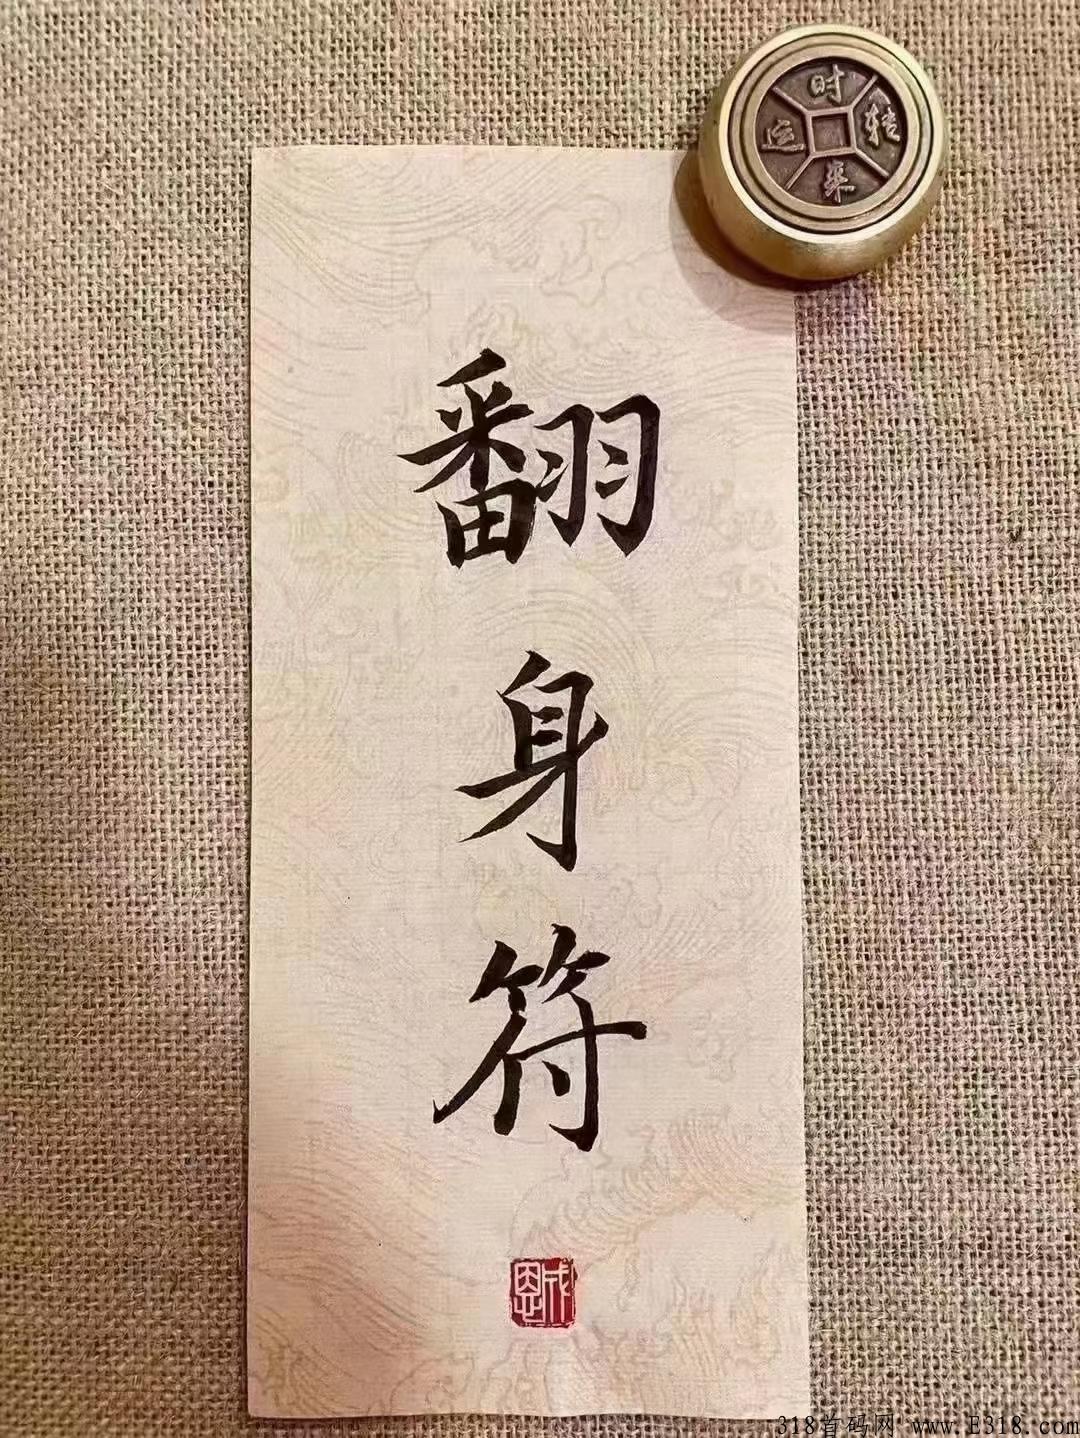 时来运转
翻身符
318首码网 www.E318.com